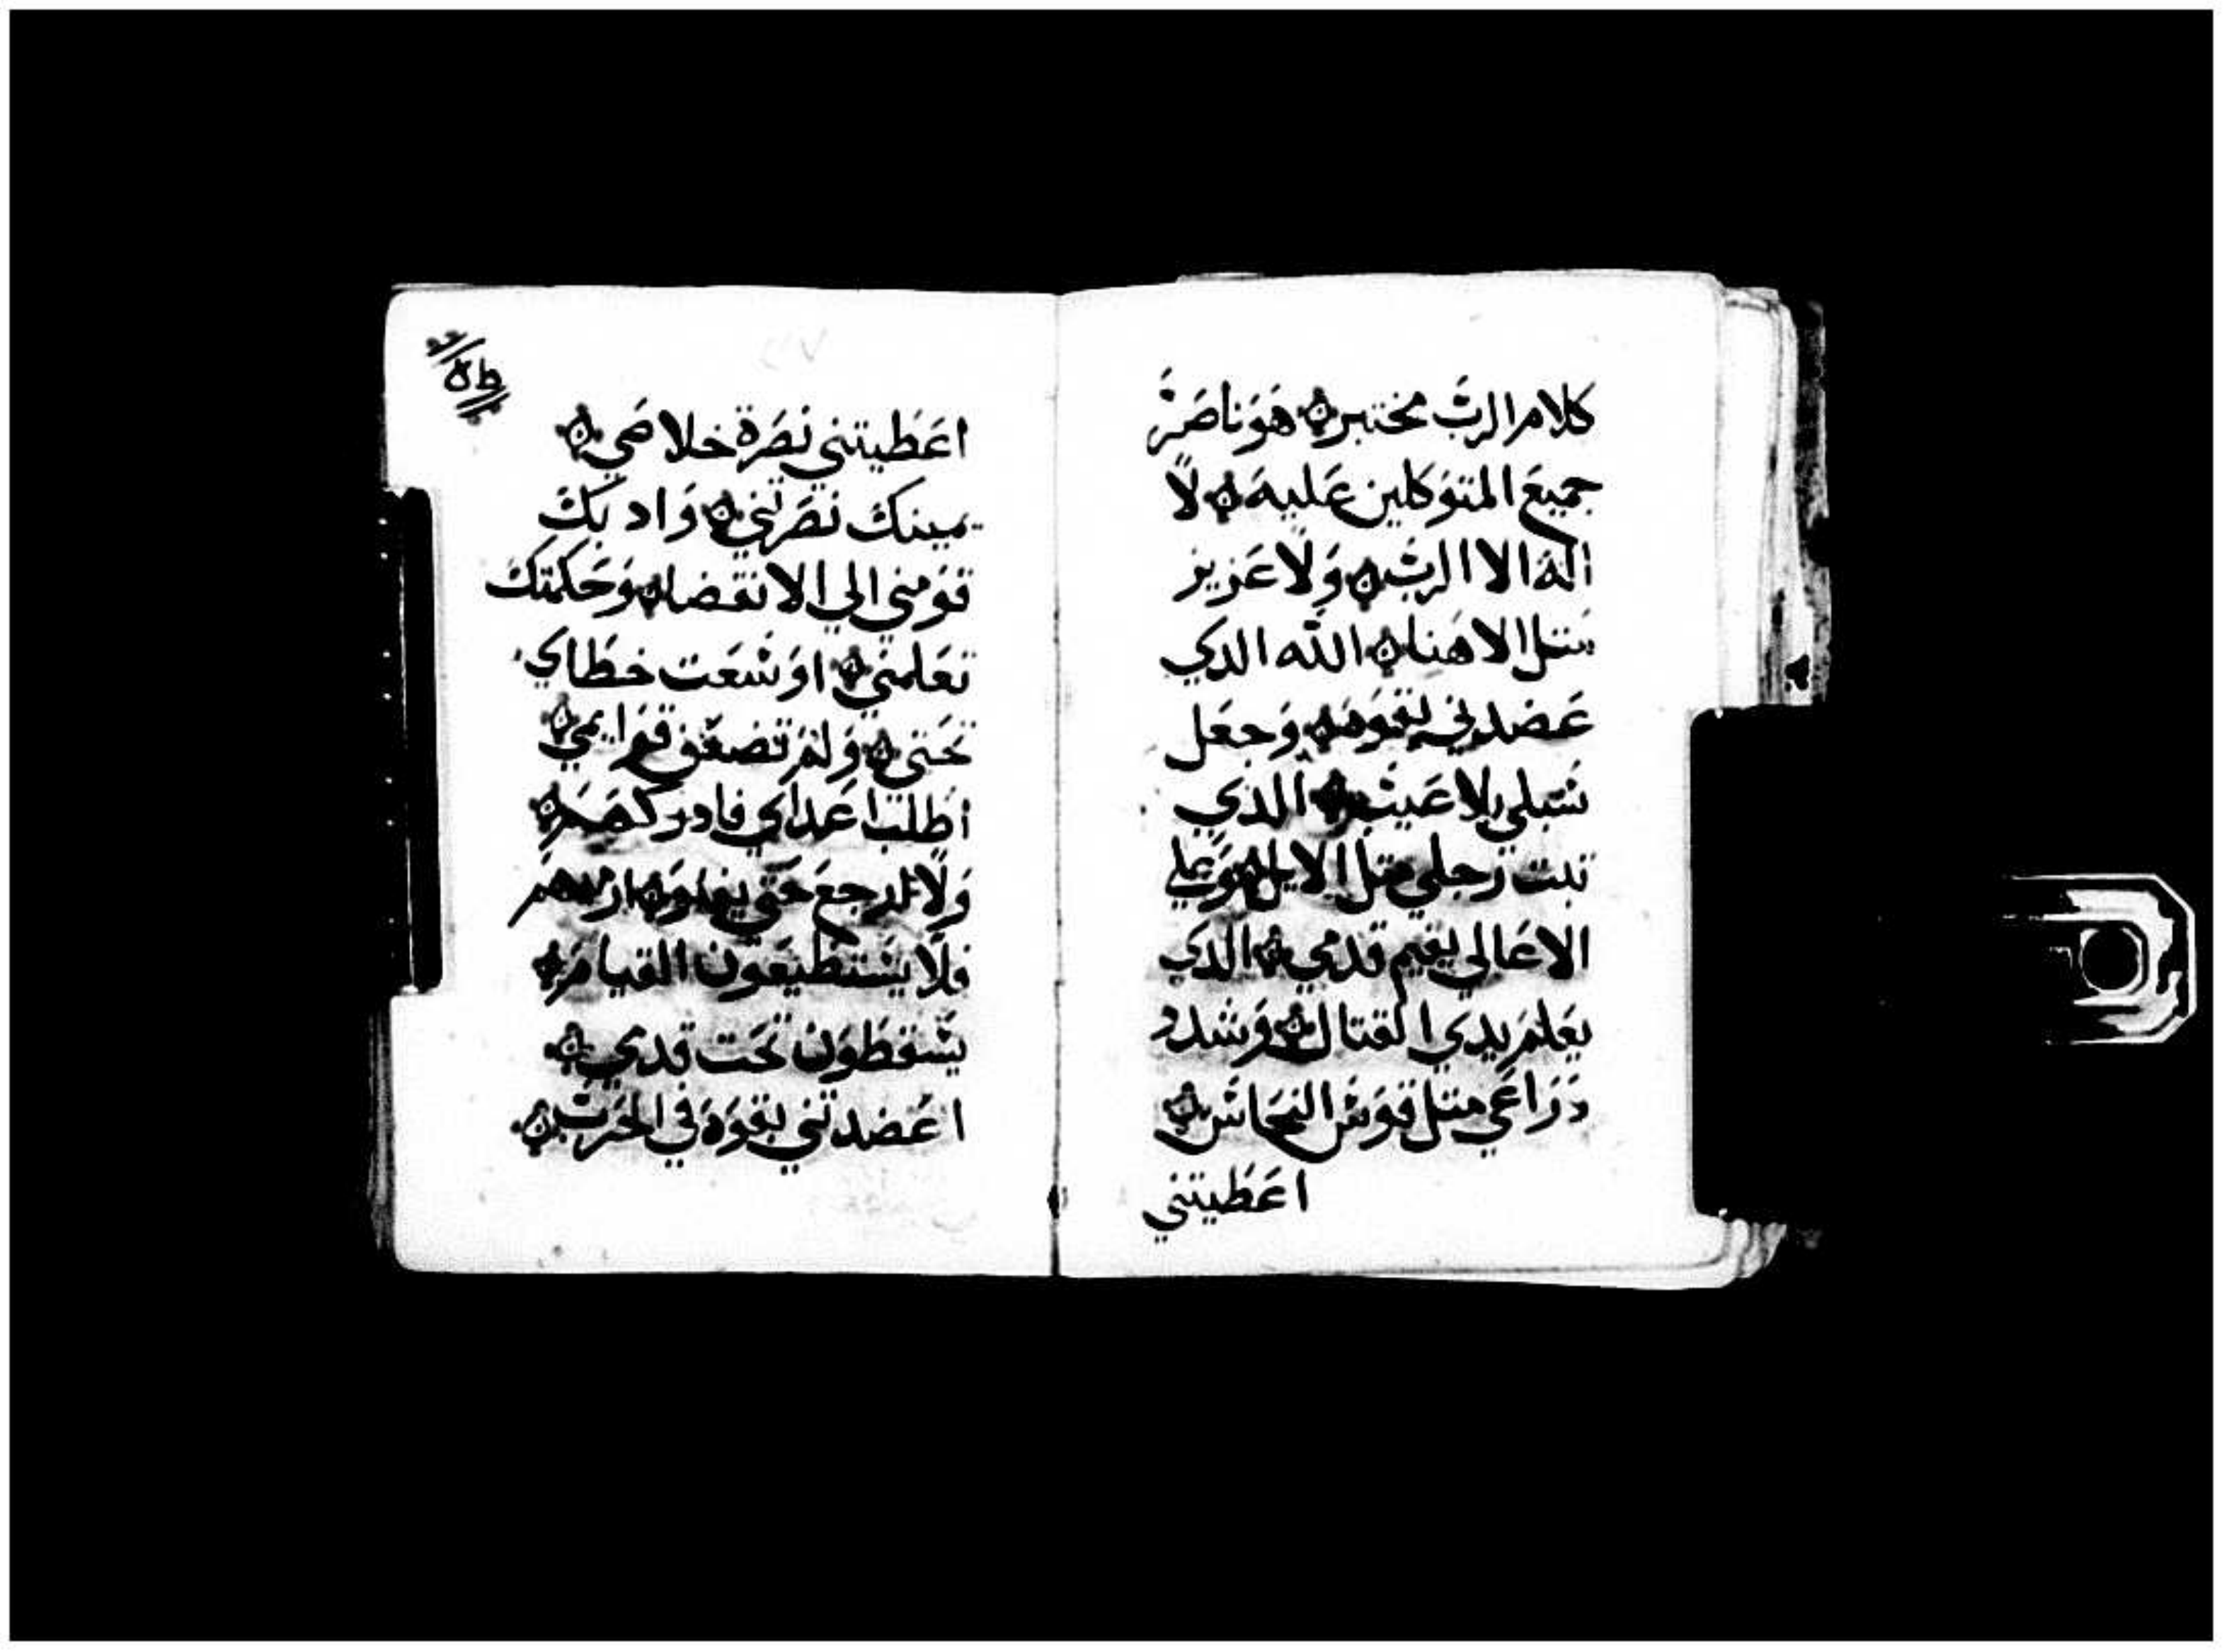 كلام الرب مختبر هو ناصر
جميع المتوكلين عليه لا
اله الا الرب ولا عزيز
متل الاهنا الله الدي
عضدني بقوه وجعل
سبلي بلا عيب الذي
تبت رجلي متل الايل وعلي
الاعالي يقيم قدمي الدي
يعلم يدي القتال وشدد
دراعي متل قوس النحاس
اعطيتني
اعطيتني نصرة خلاصي
يمينك نصرتني وادبك
قومني الي الانقضا وحكمتك
تعلمني اوسعت خطاي
تحتي ولم تضعف قوايمي
اطلب اعداي فادركهم
ولا ارجع حتي يفنوا ارضهم
فلا يستطيعون القيام
يسقطون تحت قدمي
اعضدتني بقوة في الحرب